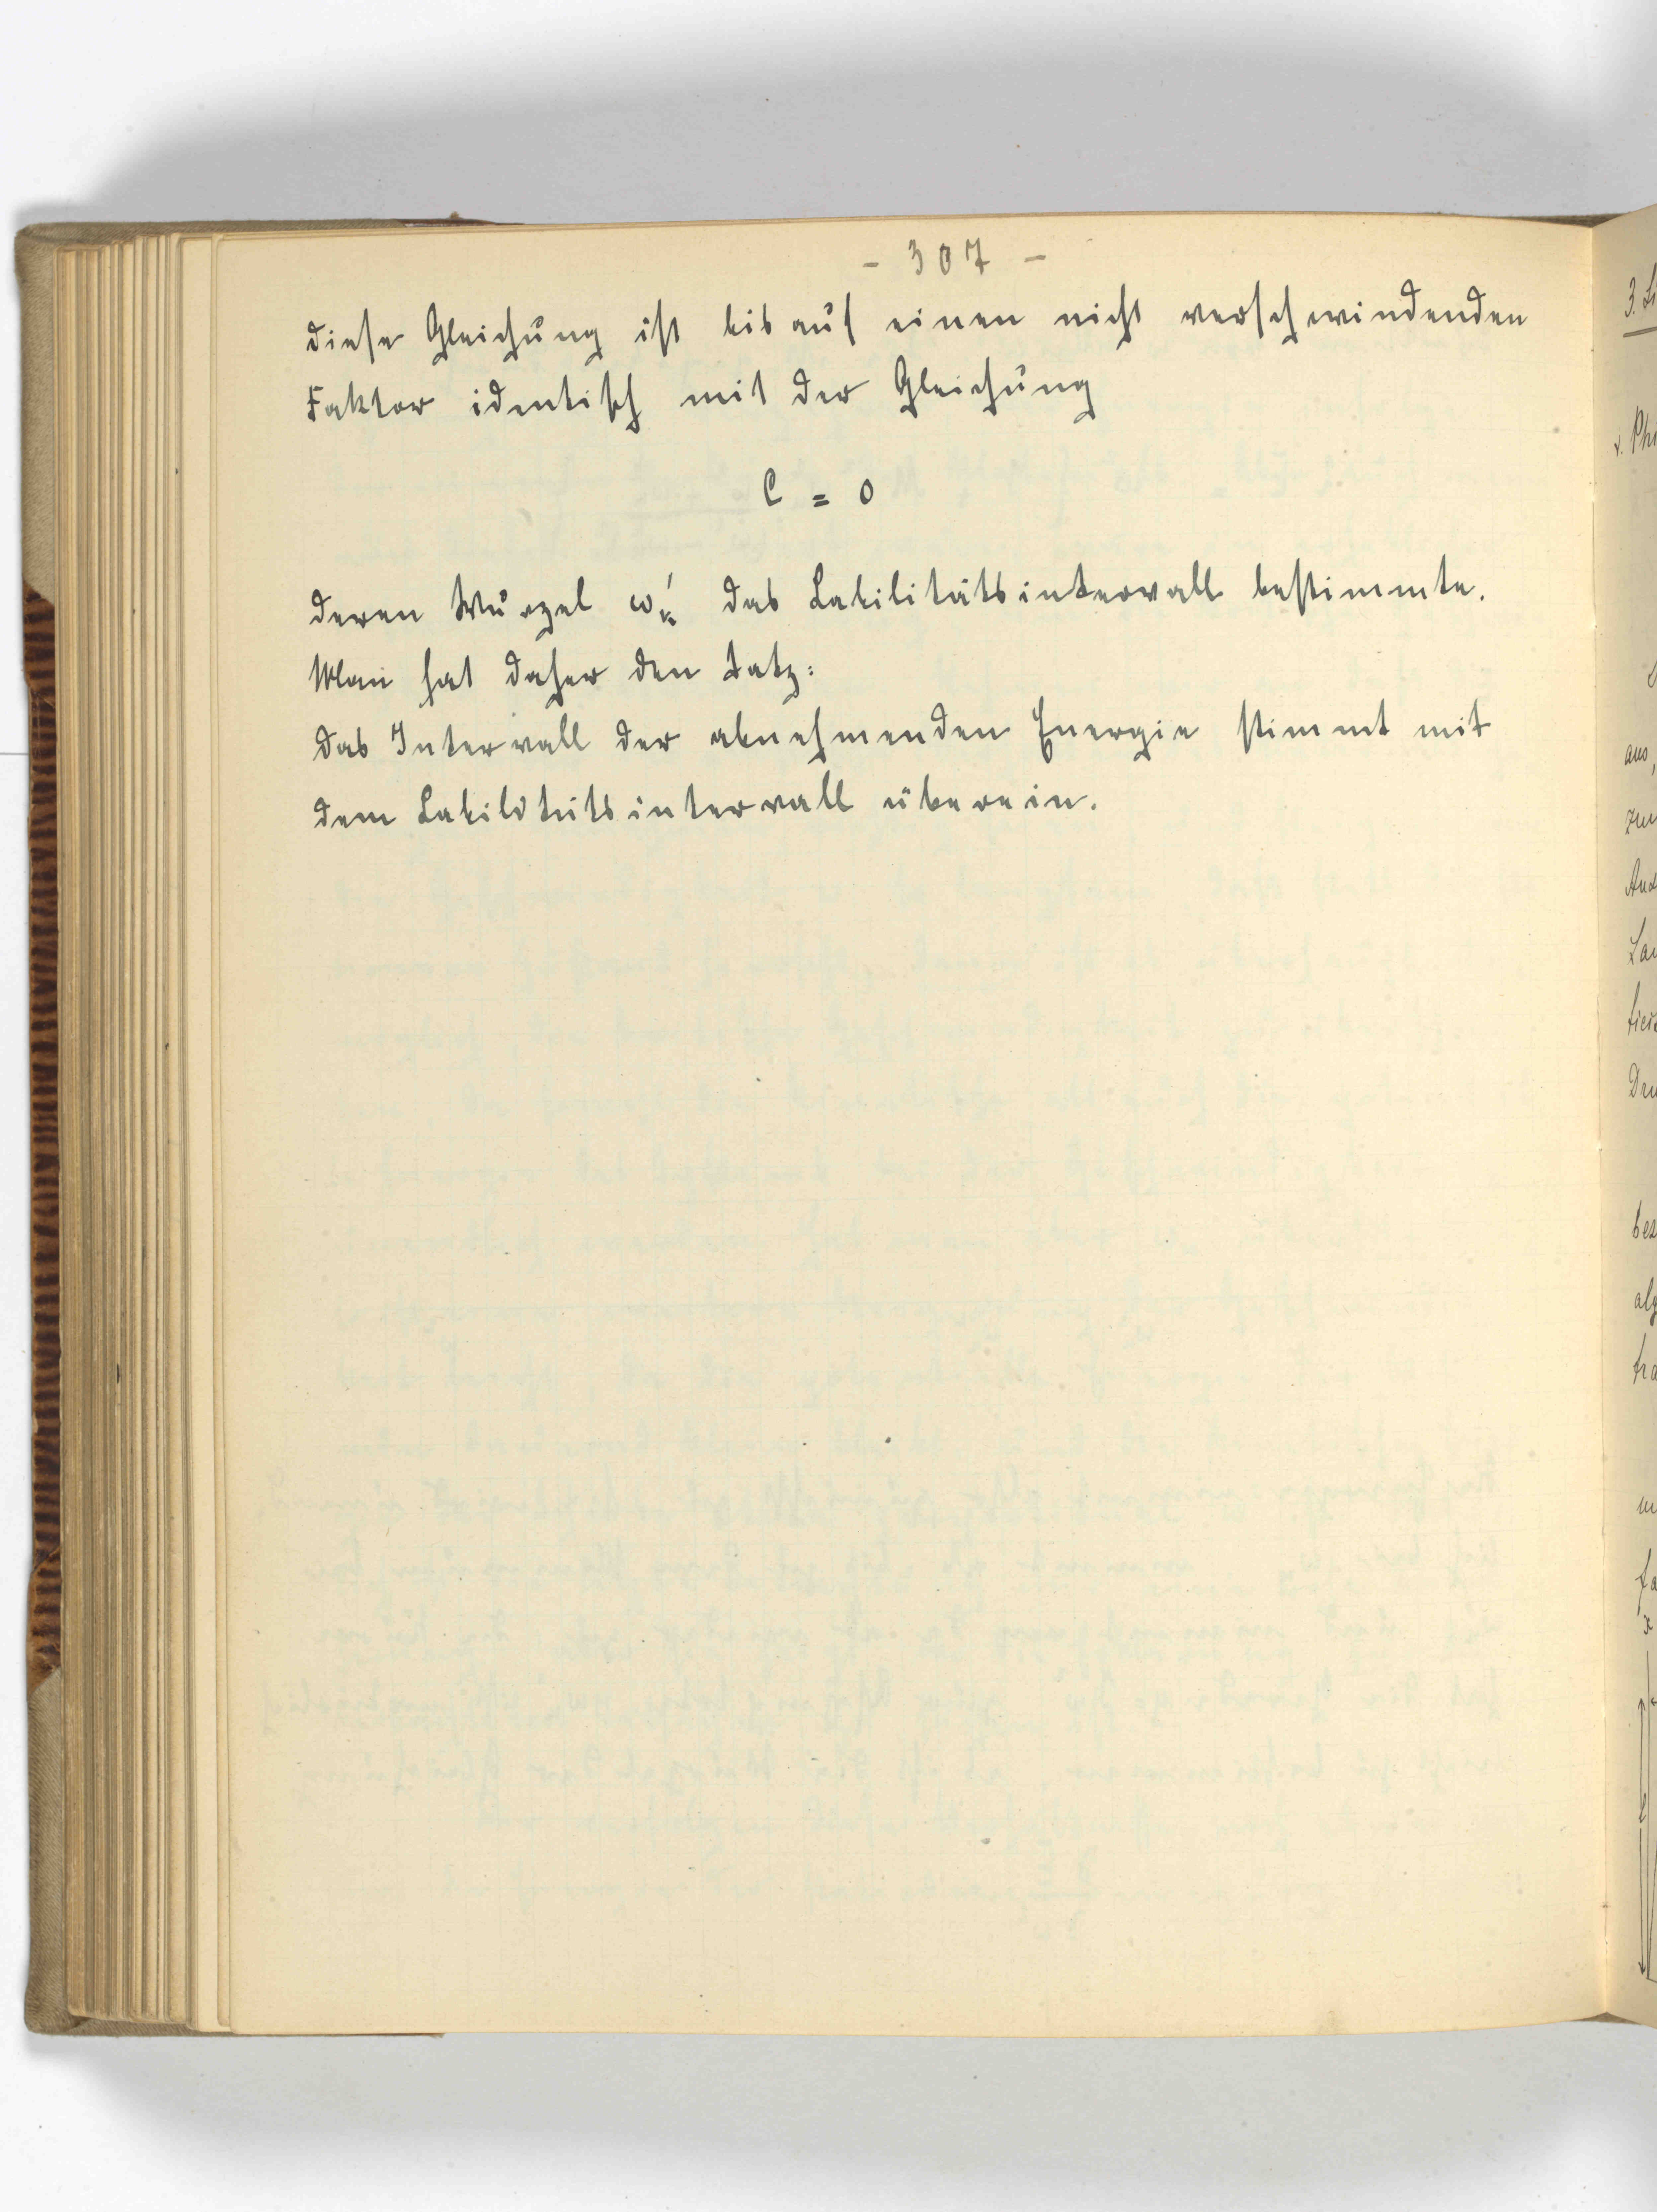 - 307 -
diese Gleichung ist bis auf einen nicht verschwindenden
Faktor identisch mit der Gleichung
C = 0
deren Wurzel das Labilitätsintervall bestimmte.
Man hat daher den Satz:
das Intervall der abnehmenden Energie stimmt mit
dem Labilitätsintervall überein.
3. Li
v. Phi
aus,
zu
Lau
bez
alg
tra
fa
x